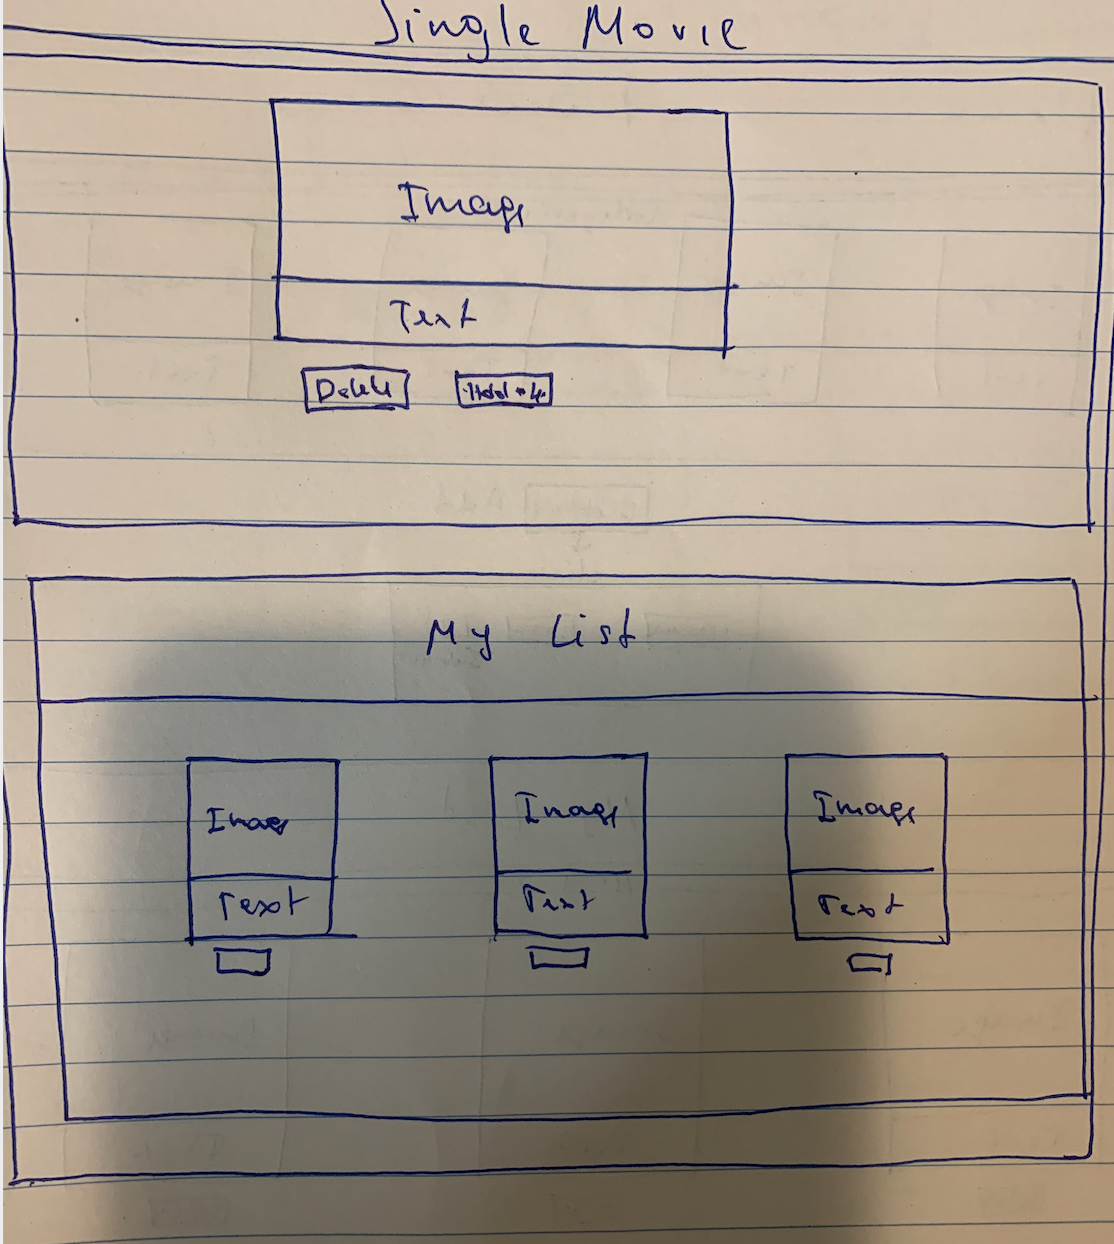 Single Movie
Image
Text
Delete
My List
Image Image Image
Text Text Text